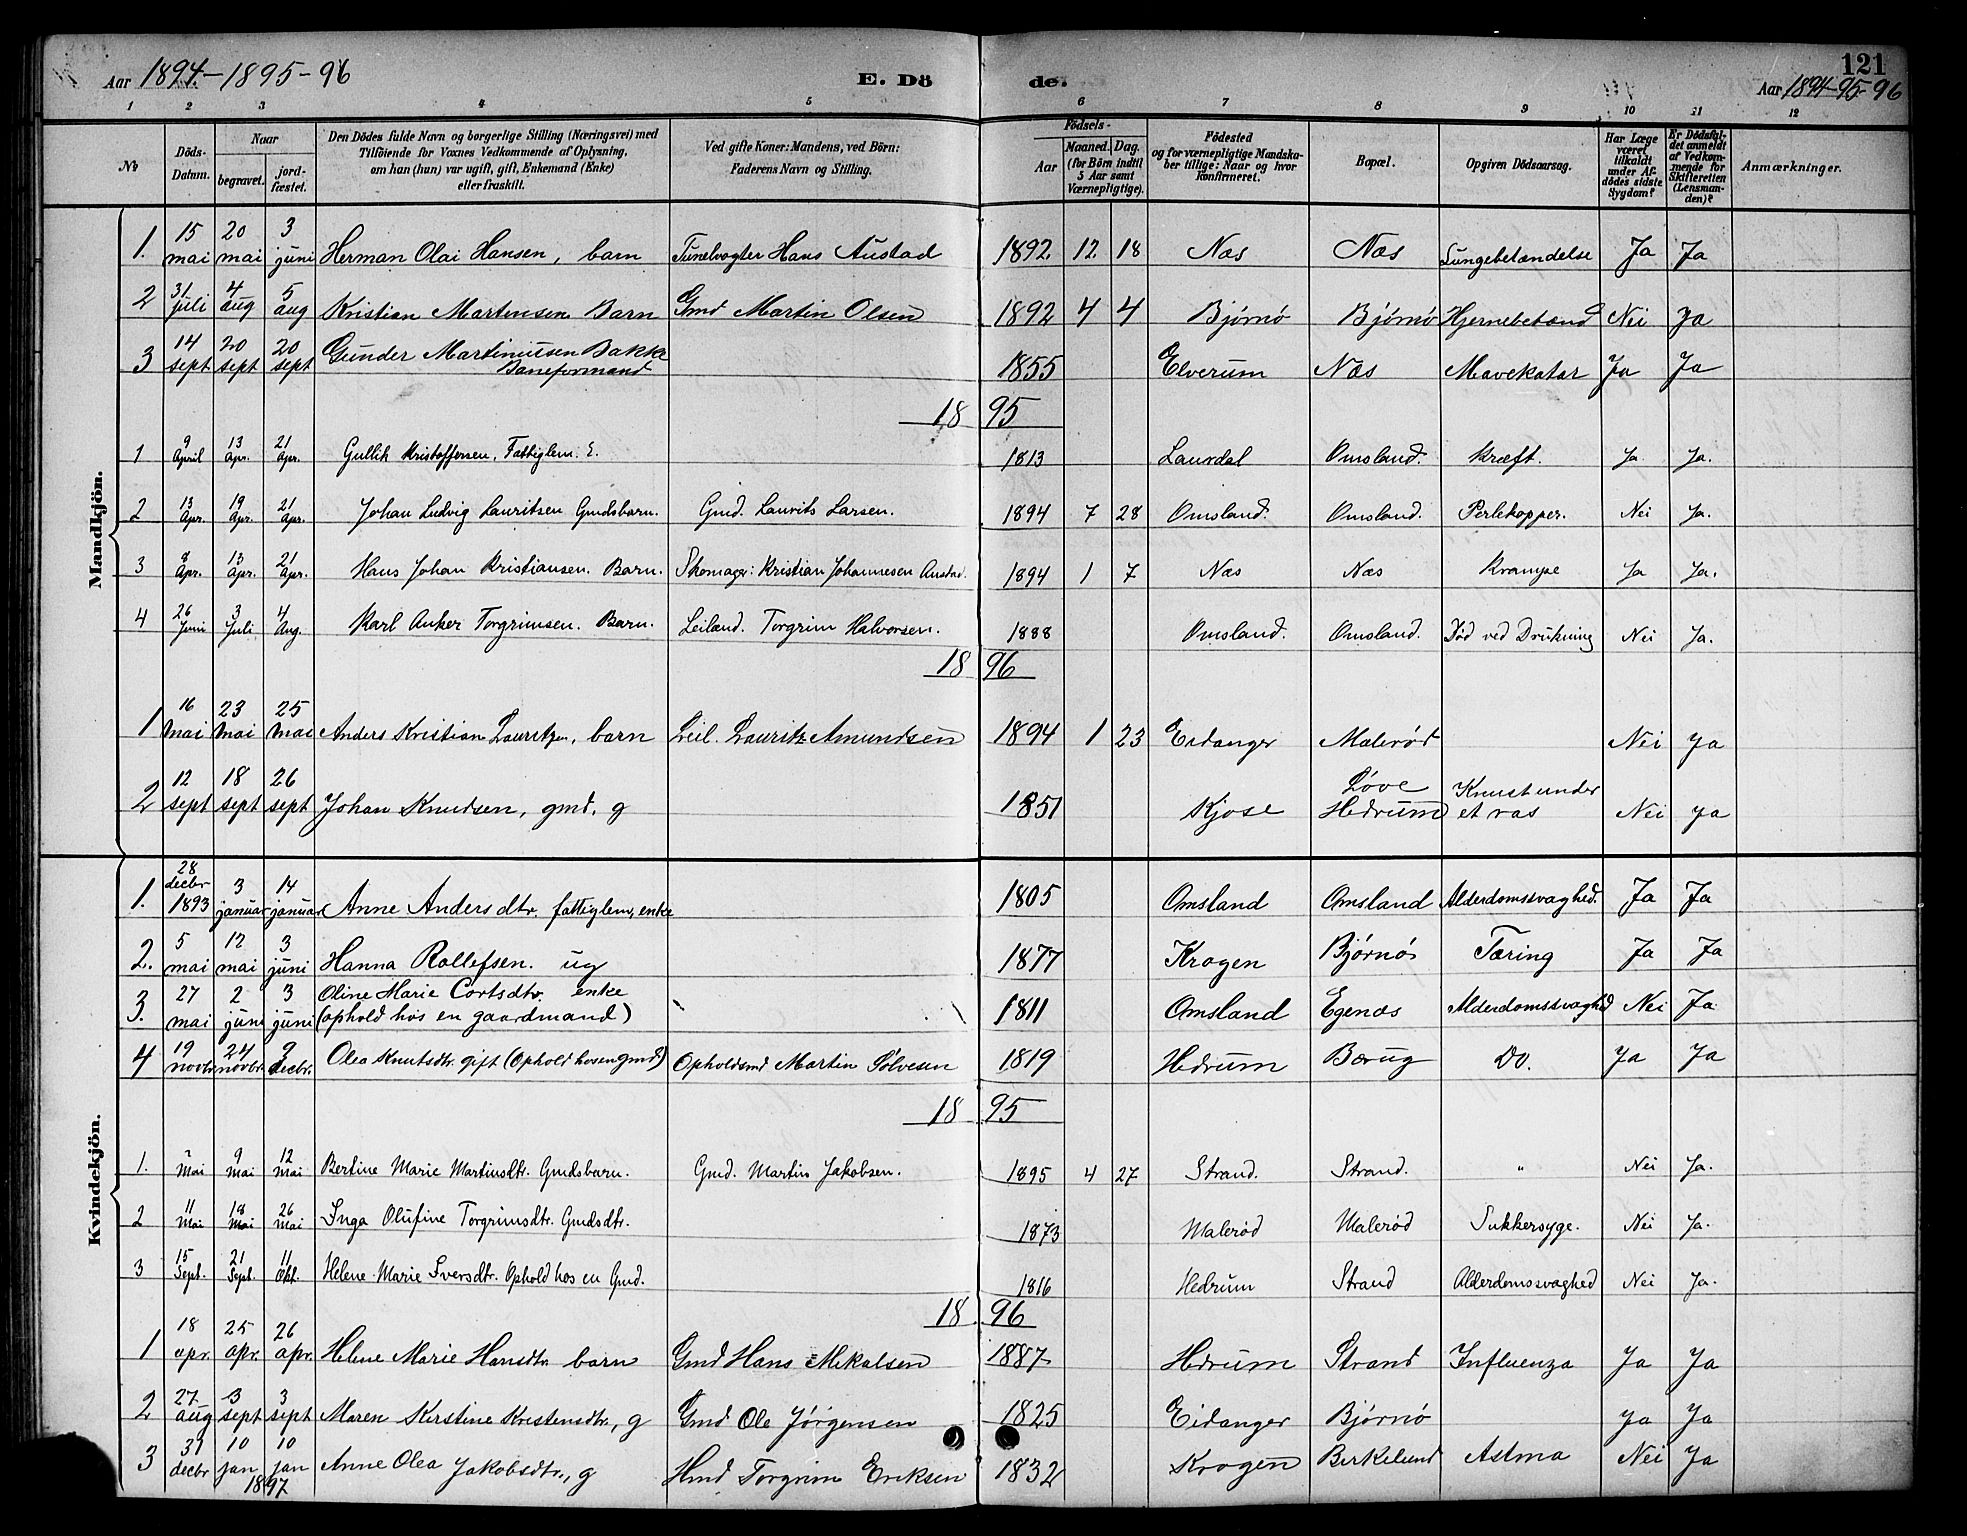 Aar 1894-1895-96 E. Dö de. Aar 1894-95-96 121
1 2 3 4 5 6 7 8 9 10 11 12
No
Döds-Datum.
Naar
begravet.
jord-fæstet.
Den Dödes fulde Navn og borgerlige Stilling (Næringsvei) med
Tilföiende for Voxnes Vedkommende af Oplysning,
om han (hun) var ugift, gift, Enkemand (Enke)
eller fraskilt.
Ved gifte Koner: Mandens, ved Börn:
Faderens Navn og Stilling.
Födsels-
Aar
Maaned. Dag.
(for Börn indtil
5 Aar samt
Værnepligtige).
Födested
og for værnepligtige Mandska-
ber tillige: Naar og hvor
konfirmeret.
Bopæl.
Opgiven Dödsaarsag.
Har Læge
været
tilkaldt
under Af-
dödes sidste
Sygdom?
Er Dödsfal-
det anmeldt
af Vedkom-
mende for
Skifteretten
(Lensman-
den)?
Anmærkninger.
Mandkjön.
1. 15 mai 20 mai 3 juni Herman Olai Hansen, barn Tunelvogter Hans Austad 1892 12 18 Næs Næs Lungebetændelse Ja Ja
2 31 juli 4 aug 5 aug Kristian Martinsen Barn Gmd Martin Olsen 1892 4 4 Bjørnø Bjørnø Hjernebetænd Nei Ja
3 14 sept 20 sept 20 sept Gunder Martiniusen Bakke
Baneformand 1855 Elverum Næs Mavekatar Ja Ja
18 95
1 9 April 13 Apr. 21 Apr. Gullik Kristoffersen, Fattiglem. E. 1813 Laurdal Omsland. Kræft. Ja. Ja.
2 13 Apr. 19 Apr. 21 Apr. Johan Ludvig Lauritsen Gmdsbarn. Gmd. Laurits Larsen. 1894 7 28 Omsland. Omsland. Perlekopper. Nei Ja.
3 8 Apr. 13 Apr. 21 Apr. Hans Johan Kristiansen. Barn. Skomager: Kristian Johannesen Austad. 1894 1 7 Næs Næs Krampe Ja Ja.
4 26 Juni 3 Juli 4 Aug. Karl Anker Torgrimsen. Barn. Leilænd. Torgrim Halvorsen. 1888 Omsland. Omsland. Død ved Drukning Nei Ja.
18 96
1 16 Mai 23 Mai 25 Mai Anders Kristian Lauritzen, barn Leil. Lauritz Amundsen 1894 1 23 Eidanger Malerød Nei Ja
2 12 sept 18 sept 26 sept Johan Knudsen, gmd, g 1851 Kjose Løve
Hedrum Knust under
et ras Nei Ja
Kvindekjön.
1. 28 decbr 1893 3 januar 14 januar Anne Andersdtr. fattiglem, enke 1805 Omsland Omsland Alderdomssvaghed. Ja Ja
2. 5 mai 12 mai 3 juni Hanna Rollefsen. ug 1877 Krogen Bjørnøs Tæring Ja Ja
3. 27 mai 2 juni 3 juni Oline Marie Cortsdtr. enke
(ophold hos en gaardmand) 1811 Omsland Egenæs Alderdomssvaghed Nei Ja
4 19 novbr 24 novbr. 9 decbr. Olea Knutsdtr. gift (Ophold hos en gmd) Opholdsmd Martin Sølvesen 1819 Hedrum Bærug Do. Ja Ja
18 95
1. Mai 9 Mai 12 Mai Bertine Marie Martinsdtr. Gmdsbarn. Gmd. Martin Jakobsen. 1895 4 27 Strand. Strand. " Nei Ja.
2 11 Mai 18 Mai 26 Mai Inga Olufine Torgrimsdtr. Gmdsdtr. 1873 Malerød Malerød Sukkersyge. Nei Ja.
3 15 Sept. 21 Sept. 11 Okt. Helene Marie Iversdtr. Ophold hos en Gmd. 1816 Hedrum Strand Alderdomssvaghed Nei Ja.
18 96
1 18 apr. 25 apr. 26 apr. Helene Marie Hansdtr. barn Gmd Hans Mikalsen 1887 Hedrum Strand Influenza Ja Ja
2 27 aug 3 sept 3 sept Maren Kirstine Kristensdtr., g Gmd Ole Jørgensen 1825 Eidanger Bjørnø Ja Ja
3 31 decbr 10 jan 10 jan 1897 Anne Olea Jakobsdtr., g Hmd Torgrim Eriksen 1832 Krogen Birkelund Astma Nei Ja